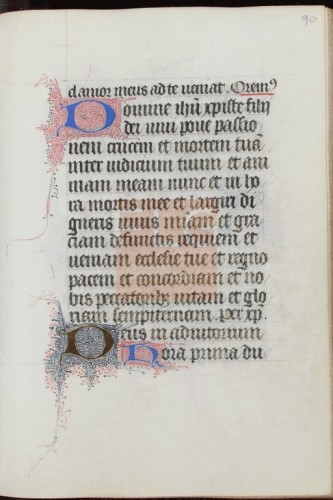 90
clamor meus ad te veniat. Oremꝰ
Domine ihū xpiste filij
dei vivi pone passio
nem crucem et mortem tuā
inter iudicium tuum et ani
mam meam nunc et in ho
ra mortis mee et largiri di
gneris vivis miām et gra
ciam defunctis requiem et
veniam ecclesie tue et regno
pacem et concordiam et no
bis peccatoribꝫ vitam et glo
riam sempiternam. Per xp̄.
Deus in adiutorium
Horā prima du